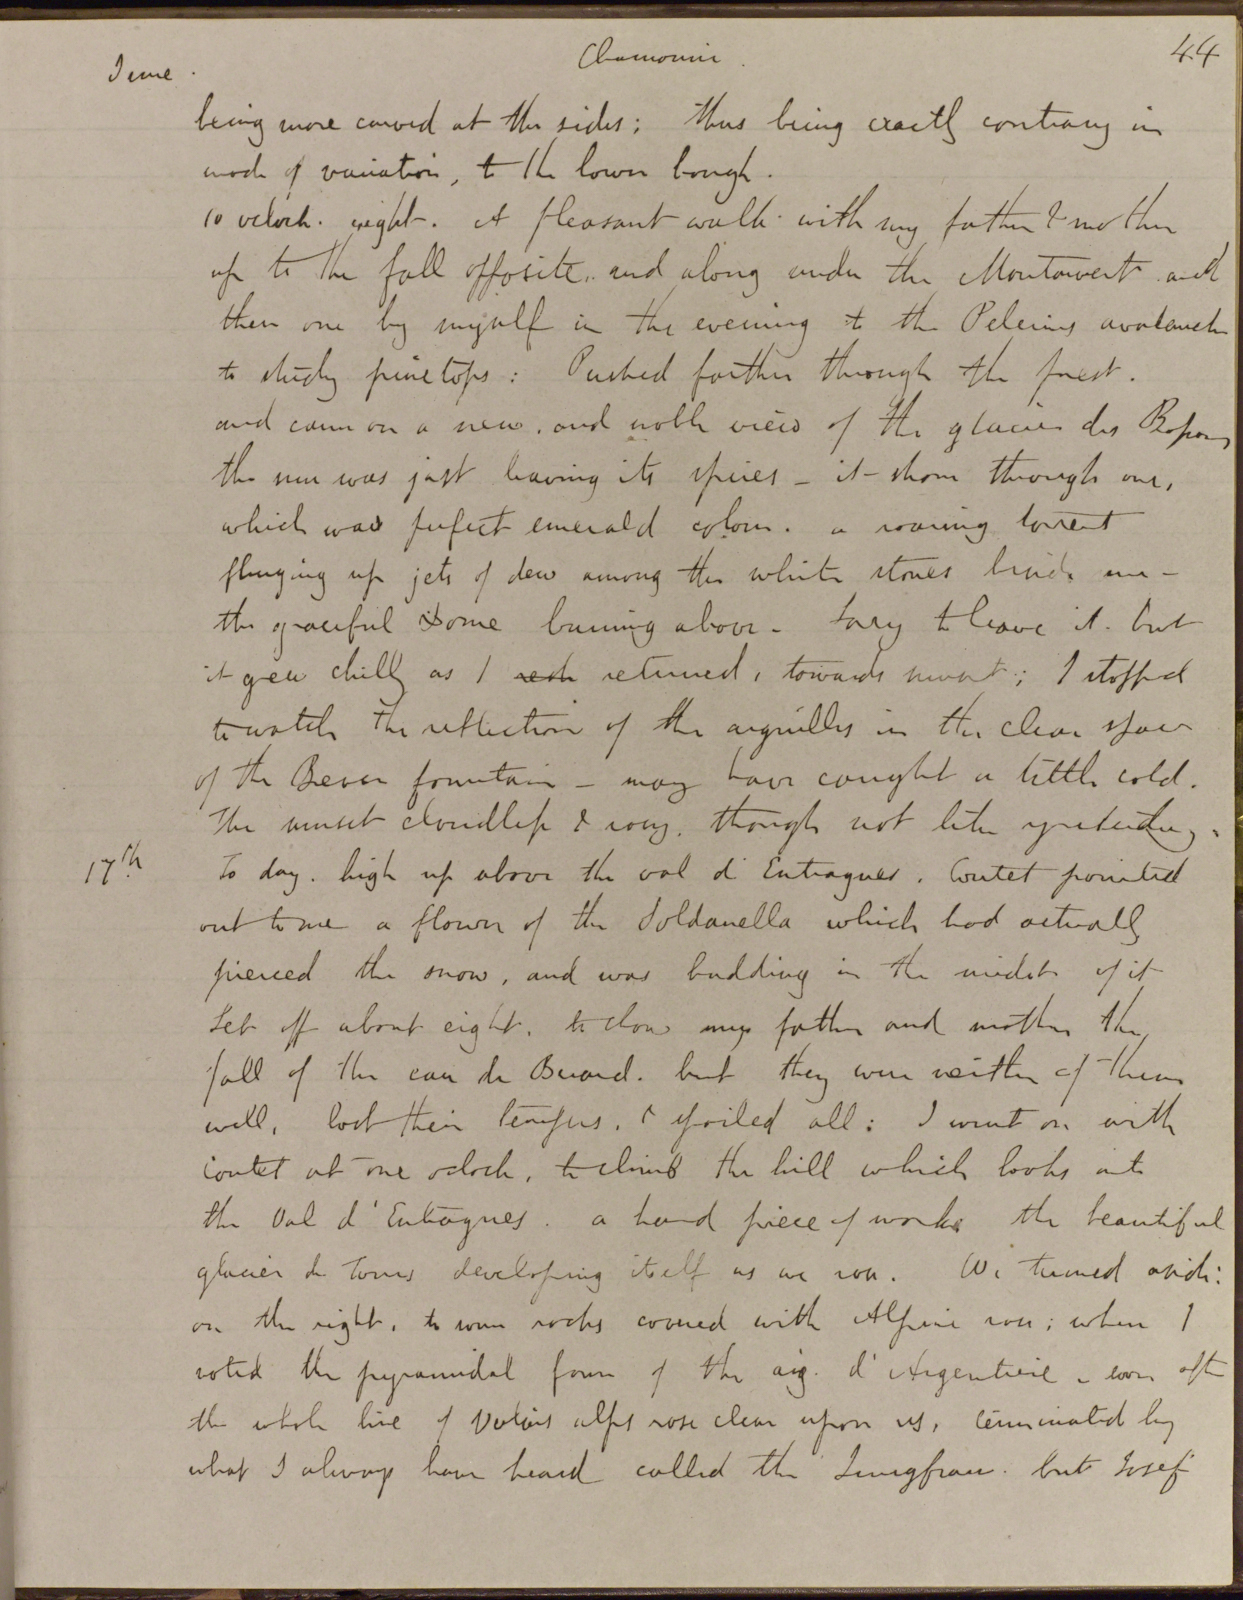 June.
Chamouni.
44
being more curved at the sides; thus being exactly contrary in
mode of variation, to the lower bough.
10 oclock. night. A pleasant walk with my father & mother
up to the fall opposite, and along under the Montanvert and
then one by myself in the evening to the Pelerins avalanche
to study pinetops: Pushed farther through the forest.
and came on a new, and noble view of the glacier des Bossons
the sun was just leaving its spires - it shone through one,
which was perfect emerald colour. a roaring torrent
flinging up jets of dew among the white stones beside me -
the graceful Dome burning above. Sorry to leave it. but
it grew chilly as I returned, towards sunset; I stopped
to watch the reflection of the aiguilles in the clear space
of the Breven fountain - may have caught a little cold.
The sunset cloudless & rosy, though not like yesterday.
17th
To day. high up above the val d' Entragues. Coutet pointed
out to me a flower of the Soldanella which had actually
pierced the snow, and was budding in the midst of it
Set off about eight, to show my father and mother the
fall of the eau de Berard. but they were neither of them
well, lost their tempers, & spoiled all: I went on with
Coutet at one oclock, to climb the hill which looks into
the Val d' Entragues. a hard piece of work. the beautiful
glacier de Tours developing itself as we rose. We turned aside:
on the right, to some rocks covered with Alpine rose; when I
noted the pyramidal form of the aig. d' Argentiere - soon after
the whole line of Valais alps rose clear upon us, terminated by
what I always have heard called the Jungfrau. but Josef